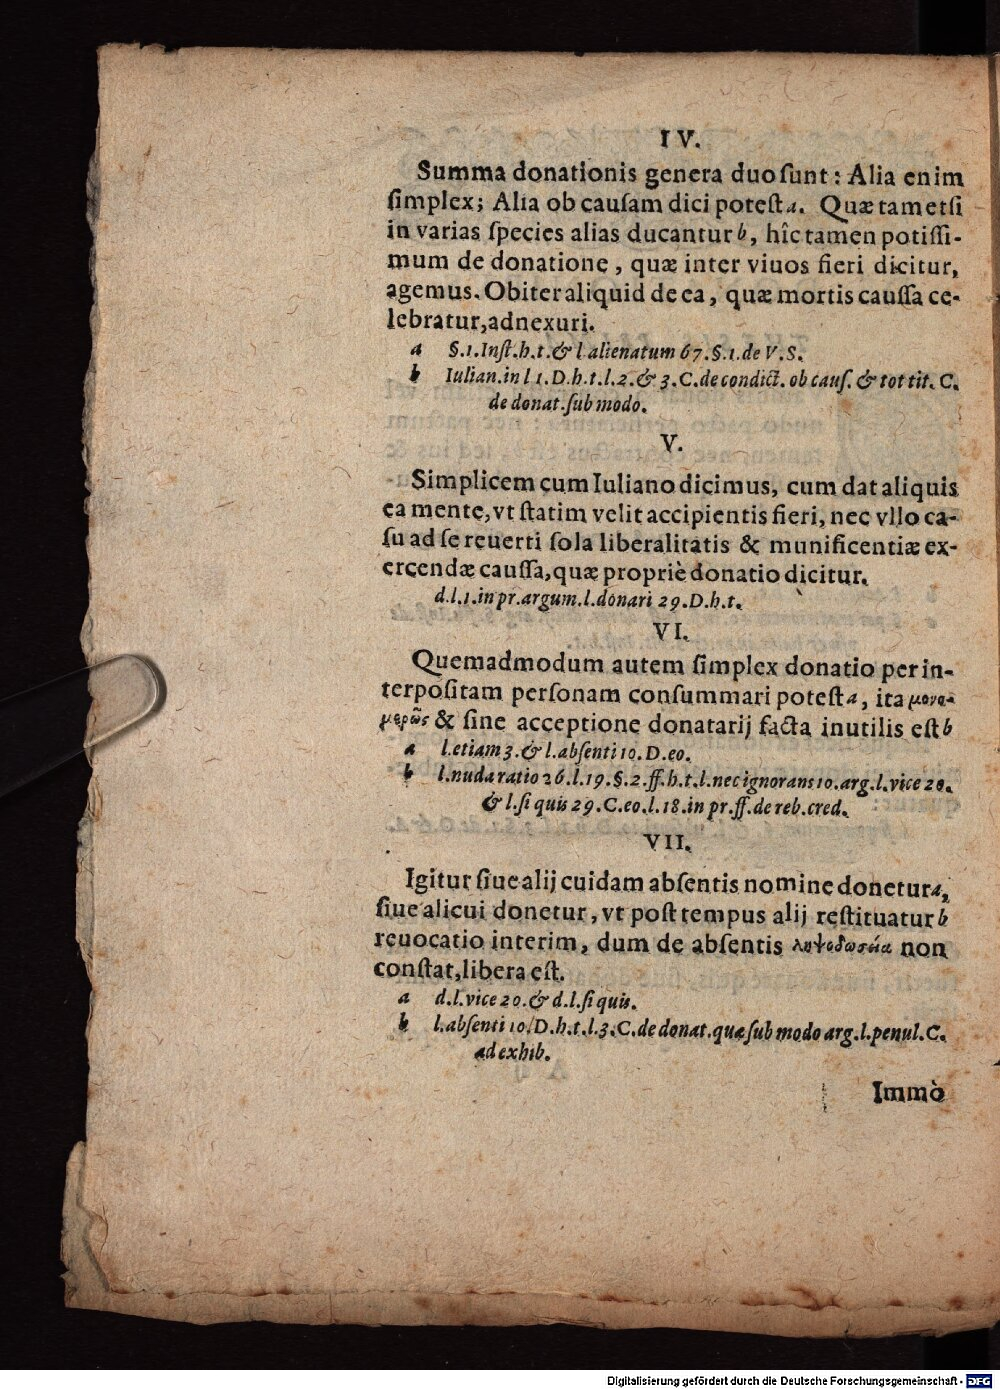 IV.
Summa donationis genera duo ſunt: Alia enim
ſimplex; Alia ob cauſam dici poteſt a. Quæ tametſi
in varias ſpecies alias ducantur b, hîc tamen potiſſi-
mum de donatione, quæ inter viuos fieri dicitur,
agemus. Obiter aliquid de ea, quæ mortis cauſſa ce-
lebratur, adnexuri.
a §.1. Inſt. h.t. & l alienatum 67. §.1. de V. S.
b Iulian. in l 1. D. h. t. l. 2. & 3. C. de condict. ob cauſ. & tot tit. C.
de donat. ſub modo.
V.
Simplicem cum Iuliano dicimus, cum dat aliquis
ea mente, vt ſtatim velit accipientis fieri, nec vllo ca-
ſu ad ſe reuerti ſola liberalitatis & munificentiæ ex-
ercendæ cauſſa, quæ propriè donatio dicitur.
d. l. 1. in pr. argum. l. donari 29. D. h. t.
VI.
Quemadmodum autem ſimplex donatio per in-
terpoſitam perſonam conſummari poteſt a, ita μονο-
μερῶς & ſine acceptione donatarij facta inutilis eſt b
a l. etiam 3. & l. abſenti 10. D. eo.
b l. nuda ratio 26. l. 19. §. 2. ff. h. t. l. nec ignorans 10. arg. l. vice 20.
& l. ſi quis 29. C. eo. l. 18. in pr. ff. de reb. cred.
VII.
Igitur ſiue alij cuidam abſentis nomine donetur a,
ſiue alicui donetur, vt poſt tempus alij reſtituatur b
reuocatio interim, dum de abſentis non
conſtat, libera eſt.
a d. l. vice 20. & d. l. ſi quis.
b l. abſenti 10. D. h. t. l. 3. C. de donat. quæ ſub modo arg. l. penul. C.
ad exhib.
Immò
Digitalisierung gefördert durch die Deutsche Forschungsgemeinschaft - DFG